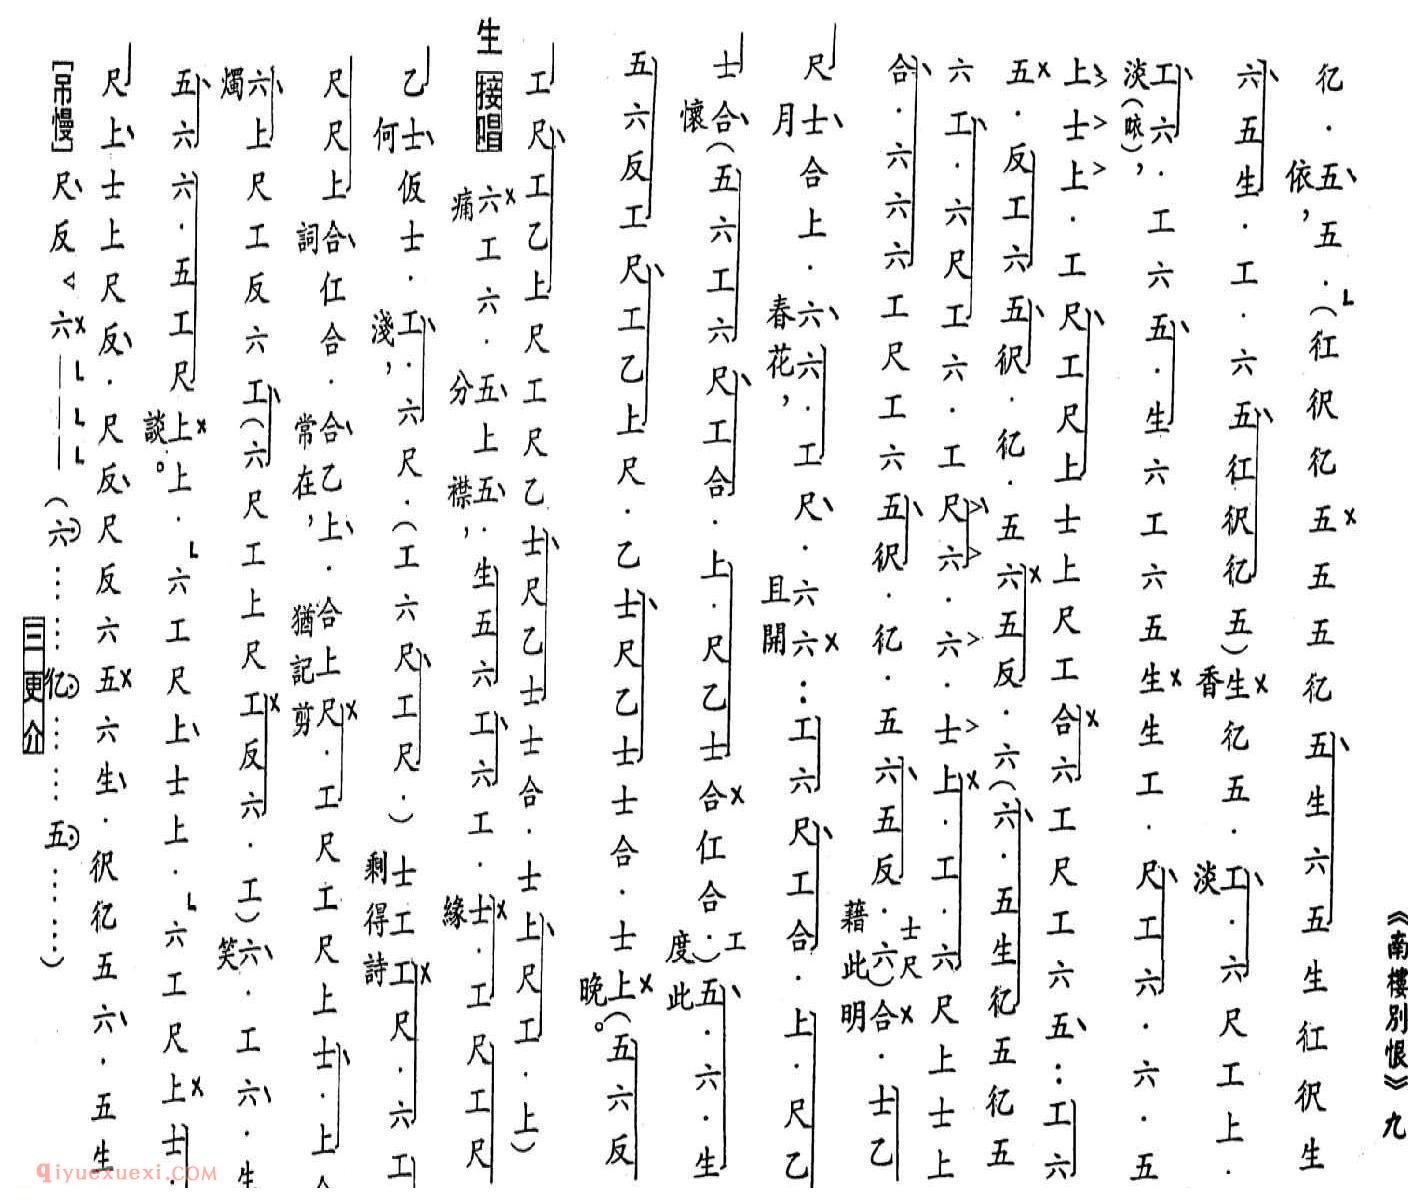 《南樓別恨》九
伬．五、五．（仜伬亿五五五亿五生六五生仜伬生
依，
六五生．工．六五仜伬亿五）生亿五．工．六尺工上．
香 淡
工六．工六五．生六工六五生生工．尺工六．六．五
淡（啖），
上士上．工尺工尺上士上尺工合六工尺工六五：工六
五．反工六五伬．亿．五六五反．六（六．五生亿五亿五
六工．六尺工六．工尺六．六．士上．工．六尺上士上
合．六六六工尺工六五伬．亿．五六五反．六）合．士乙
士尺
藉此明
尺士合上．六六．工尺．六六：工六尺工合．上．尺乙
月 春花， 且開
士合（五六工六尺工合．上．尺乙士合仜合．）五．六．生
工
懷 度此
五六反工尺工乙上尺．乙士尺乙士士合．士上（五六反
晚。
工尺工乙上尺工尺乙士尺乙士士合．士上尺工．上）
生 接唱 六工六．五上五．生五六工六工．士．工尺工尺
痛 分襟， 緣
乙士仮士．工．六尺．（工六尺工尺．）士工工尺．六工
何 淺， 剩得詩
尺尺上合仜合．合乙上．合上尺．工尺工尺上士．上合
詞 常在， 猶記剪
六上尺工反六工（六尺工上尺工反六．工）六．工六．生
燭 笑
五六六．五工尺上上．六工尺上士上．六工尺上士．
談。
尺上士上尺反．尺反尺反六五六生．伬亿五六．五生
［吊慢］尺反六———（六……亿……五……）
三更介
qiyuexuexi.COM